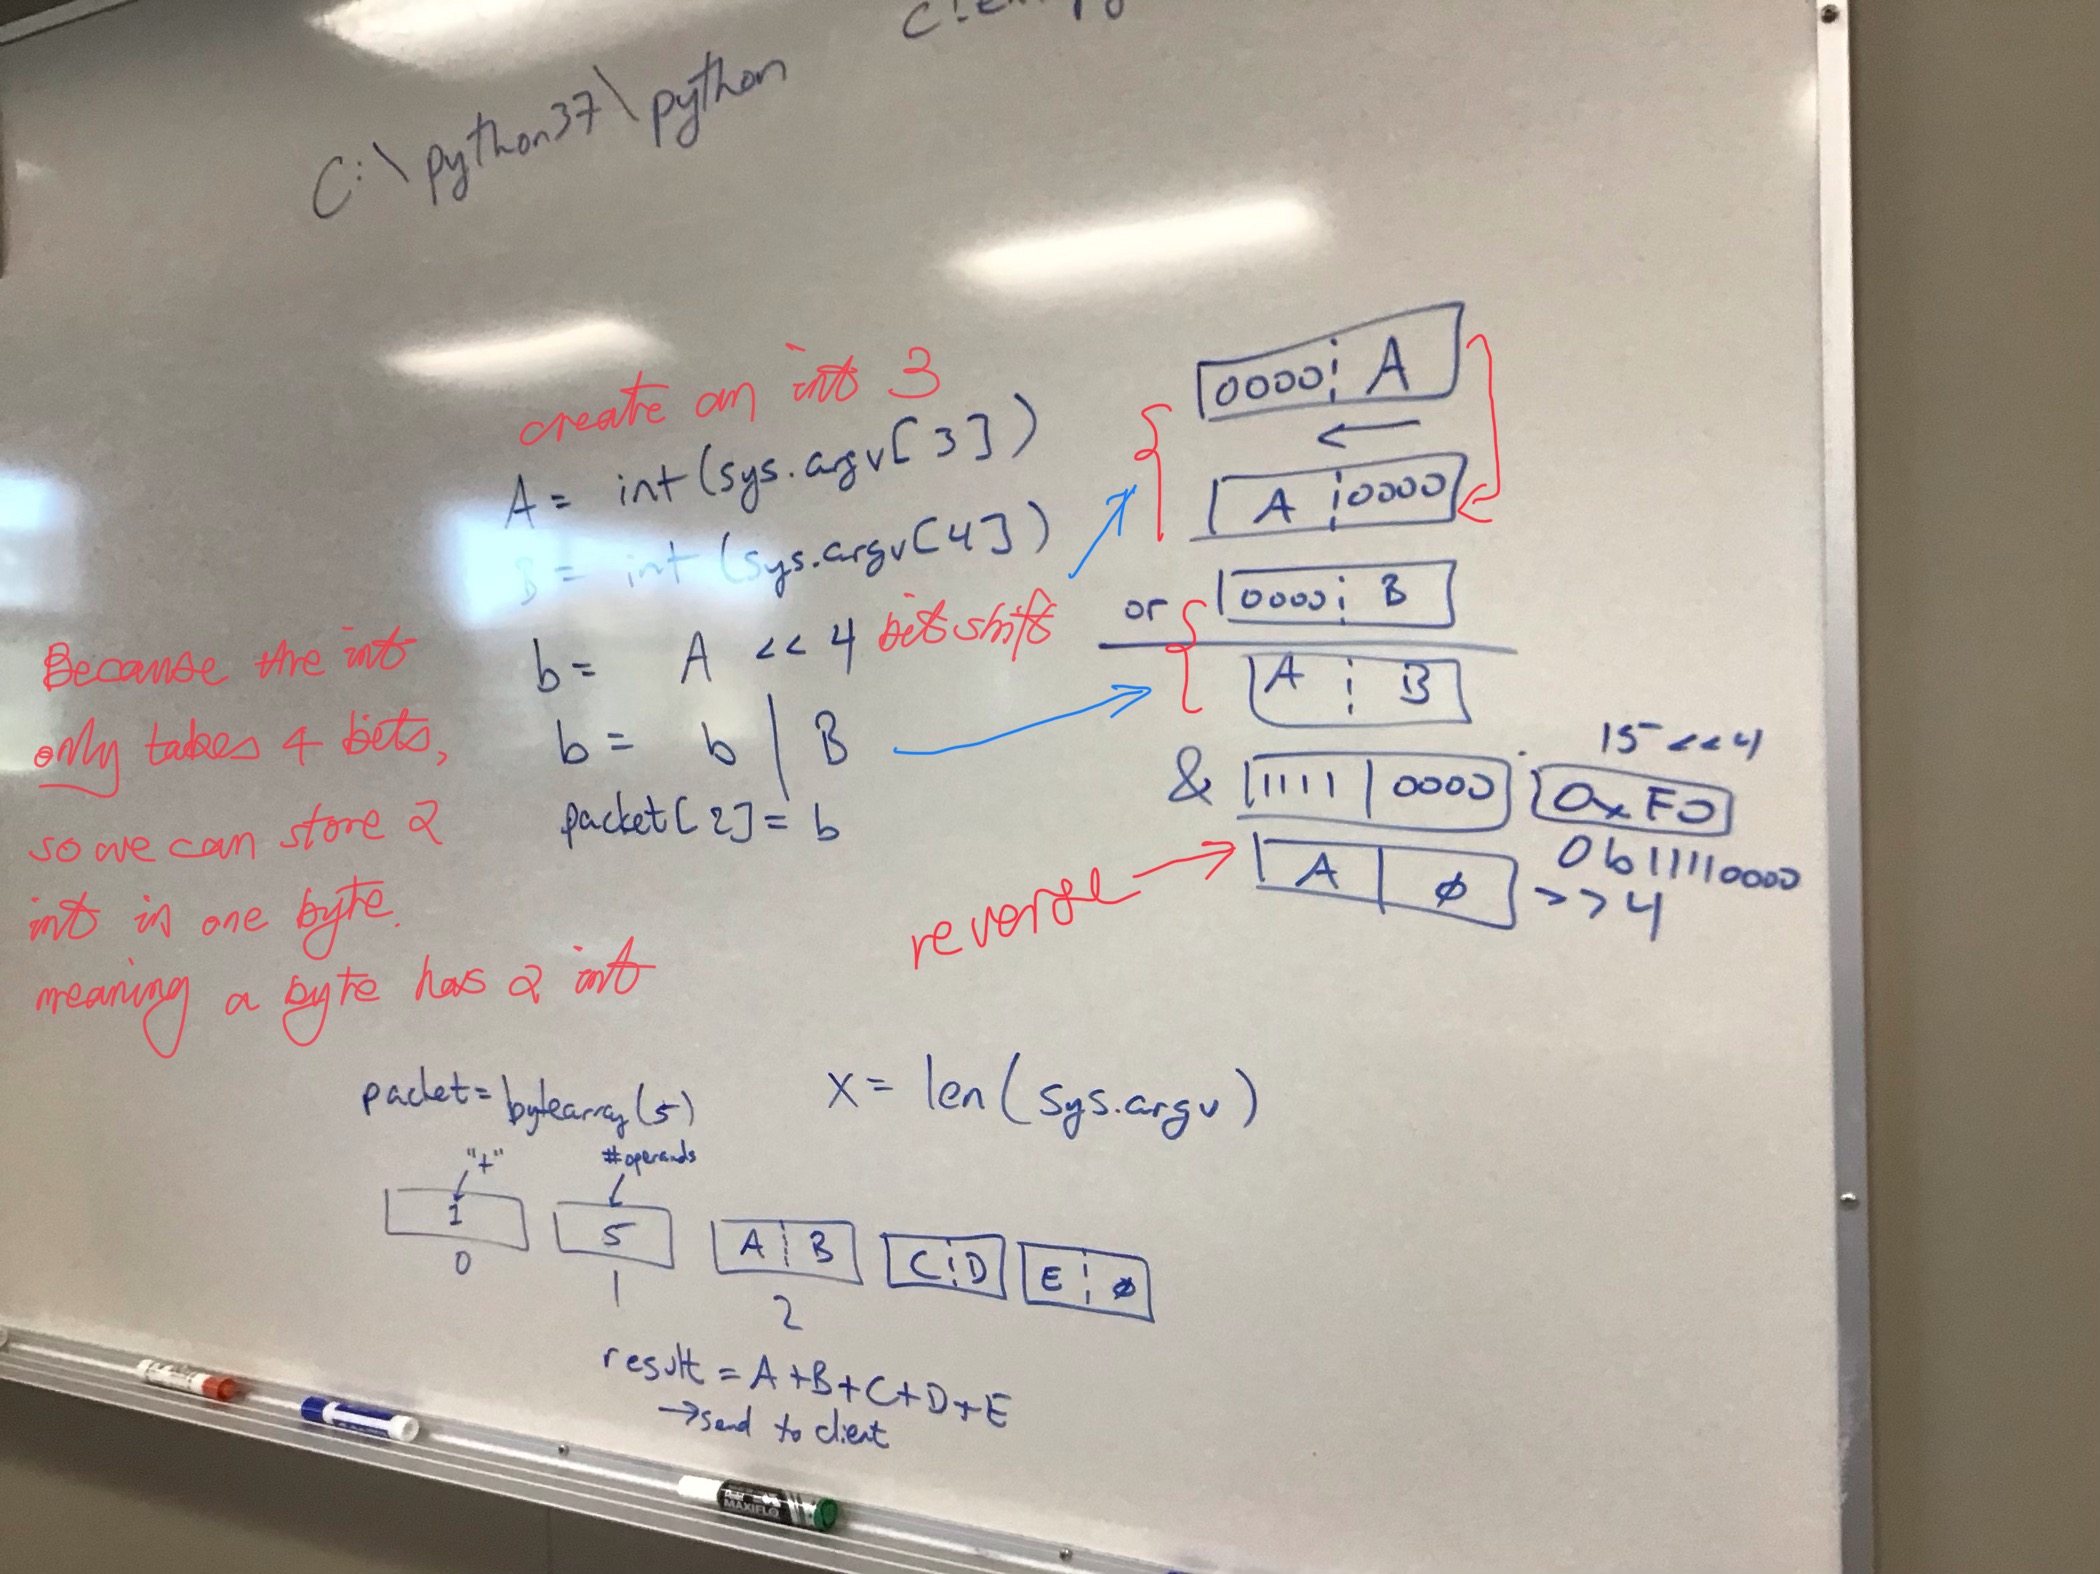 C:\python37\python
create an int 3
A = int(sys.argv[3])
B = int(sys.argv[4])
b = A << 4 bit shift
b = b | B
packet[2] = b
Because the int
only takes 4 bits,
so we can store 2
int in one byte.
meaning a byte has 2 int
0000 A
←
A 0000
or 0000 B
A B
15 << 4
& 1111 | 0000 0xF0
0b11110000
reverse → A ϕ >> 4
packet = bytearray(5)
x = len(sys.argv)
"+" #operands
1 5 A B C D E ϕ
0 1 2
result = A+B+C+D+E
→ send to client
MAXIFLO